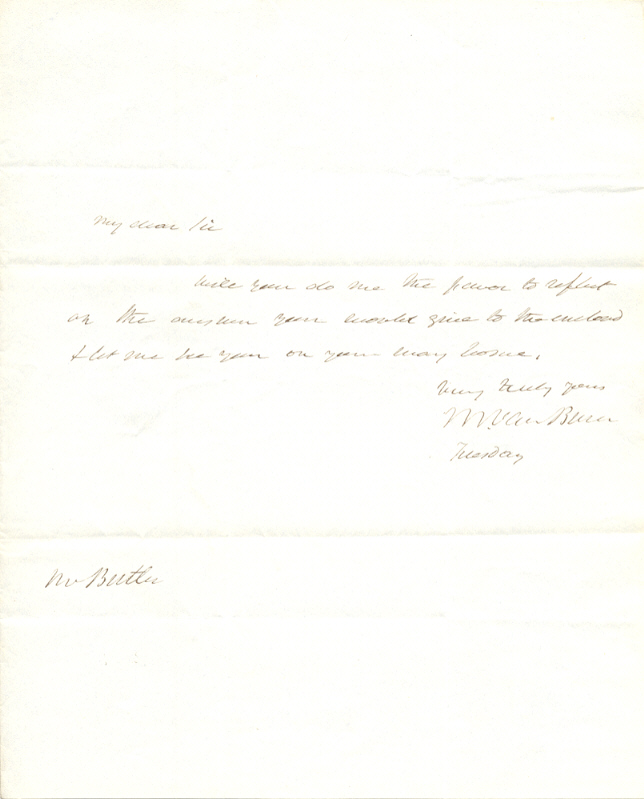 My dear Sir
Will you do me the favor to reflect
on the answer you would give to the enclosed
& let me see you on your way home.
Very truly yours
M. Van Buren
Tuesday
Mr Butler